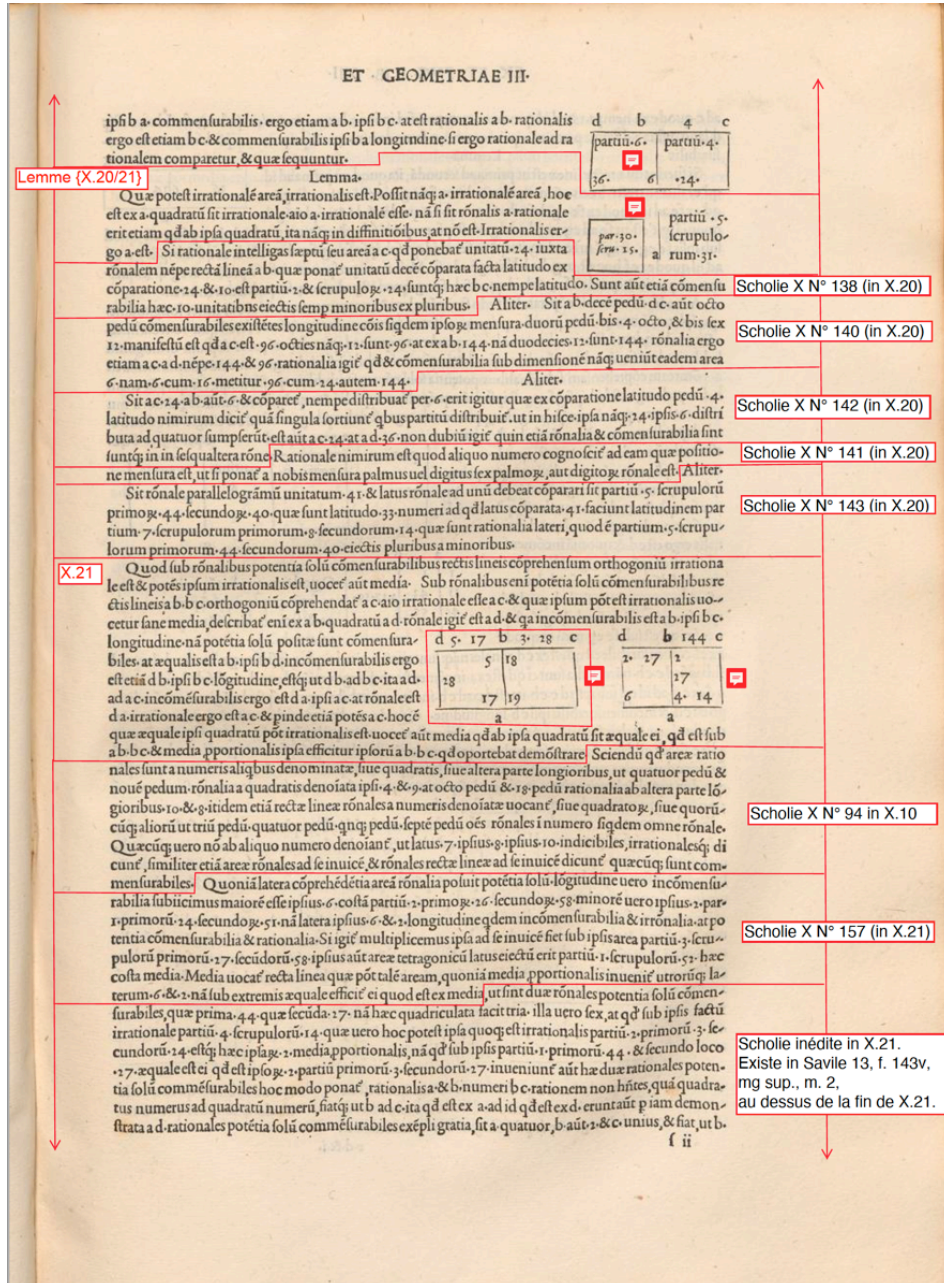 ET GEOMETRIAE III·
ipſi b a· commenſurabilis· ergo etiam a b· ipſi b c· at eſt rationalis a b· rationalis
ergo eſt etiam b c·& commenſurabilis ipſi b a longitudine·ſi ergo rationale ad ra
tionalem comparetur,& quæ ſequuntur·
d b 4 c
partiū·6· partiū·4·
36· 6 ·24·
Lemme {X.20/21}
Lemma·
Quæ poteſt irrationalē areā,irrationalis eſt·Poſſit nāq; a·irrationalē areā,hoc
eſt ex a·quadratū ſit irrationale·aio a·irrationalē eſſe· nā ſi ſit rōnalis a·rationale
erit etiam qđ ab ipſa quadratū,ita nāq; in diffinitiōibus,at nō eſt·Irrationalis er-
go a·eſt· Si rationale intelligas ſæptū ſeu areā a c·qđ ponebat unitatū·24·iuxta
rōnalem nēpe rectā lineā a b·quæ ponať unitatū decē cōparata facta latitudo ex
par·30·
ſcru·15·
a
partiū ·5·
ſcrupulo-
rum·31·
cōparatione·24·&·10·eſt partiū·2·& ſcrupuloꝝ·24·ſuntq; hæc b c·nempe latitudo· Sunt aūt etiā cōmenſu
rabilia hæc·10·unitatibus eiectis ſemp minoribus ex pluribus· Aliter· Sit a b·decē pedū·d c·aūt octo
Scholie X N° 138 (in X.20)
pedū cōmenſurabiles exiſtētes longitudine cōis ſiqdem ipſoꝝ menſura·duorū pedū·bis·4· octo,& bis ſex
12·manifeſtū eſt qđ a c·eſt·96·octies nāq;·12·ſunt·96·at ex a b·144·nā duodecies·12·ſunt·144· rōnalia ergo
Scholie X N° 140 (in X.20)
etiam a c·a d·nēpe·144·& 96·rationalia igiť qđ & cōmenſurabilia ſub dimenſionē nāq; ueniūt eadem area
6·nam·6·cum·16·metitur·96·cum·24·autem·144· Aliter·
Sit a c·24·a b·aūt·6·& cōpareť,nempe diſtribuať per·6·erit igitur quæ ex cōparatione latitudo pedū·4·
Scholie X N° 142 (in X.20)
latitudo nimirum diciť quā ſingula ſortiunť qbus partitū diſtribuiť·ut in hiſce·ipſa nāq;·24·ipſis·6·diſtri
buta ad quatuor ſumpſerūt·eſt aūt a c·24·at a d·36·non dubiū igiť quin etiā rōnalia & cōmenſurabilia ſint
ſuntq; in in ſeſqualtera rōne· Rationale nimirum eſt quod aliquo numero cognoſciť ad eam quæ poſitio-
Scholie X N° 141 (in X.20)
ne menſura eſt,ut ſi ponať a nobis menſura palmus uel digitus ſex palmoꝝ,aut digitoꝝ rōnale eſt· Aliter·
Sit rōnale parallelogrāmū unitatum·41·& latus rōnale ad unū debeat cōparari ſit partiū·5· ſcrupulorū
Scholie X N° 143 (in X.20)
primoꝝ·44·ſecundoꝝ·40·quæ ſunt latitudo·33·numeri ad qđ latus cōparata·41·faciunt latitudinem par
tium·7·ſcrupulorum primorum·8·ſecundorum·14·quæ ſunt rationalia lateri,quod ē partium·5·ſcrupu-
lorum primorum·44·ſecundorum·40·eiectis pluribus a minoribus·
X.21
Quod ſub rōnalibus potentia ſolū cōmenſurabilibus rectis lineis cōprehenſum orthogoniū irrationa
le eſt & potēs ipſum irrationalis eſt,uoceť aūt media· Sub rōnalibus eni potētia ſolū cōmenſurabilibus re
ctis lineis a b·b c·orthogoniū cōprehendať a c·aio irrationale eſſe a c·& quæ ipſum pōt eſt irrationalis uo-
cetur ſane media,deſcribať eni ex a b·quadratū a d·rōnale igiť eſt a d·& qa incōmenſurabilis eſt a b·ipſi b c·
longitudine·nā potētia ſolū poſitæ ſunt cōmenſura-
biles· at æqualis eſt a b·ipſi b d·incōmenſurabilis ergo
eſt etiā d b·ipſi b c·lōgitudine,eſtq; ut d b·ad b c·ita a d·
ad a c·incōmēſurabilis ergo eſt d a·ipſi a c·at rōnale eſt
d a·irrationale ergo eſt a c·& pinde etiā potēs a c·hoc ē
d 5· 17 b 3· 28 c
5 18
28
17 19
a
d b 144 c
2· 27 2
27
6 4· 14
a
quæ æquale ipſi quadratū pōt irrationalis eſt·uoceť aūt media qđ ab ipſa quadratū ſit æquale ei, qđ eſt ſub
a b·b c·& media,pportionalis ipſa efficitur ipſorū a b·b c·qđ oportebat demōſtrare· Sciendū qđ areæ ratio
nales ſunt a numeris aliqbus denominatæ,ſiue quadratis,ſiue altera parte longioribus,ut quatuor pedū &
nouē pedum·rōnalia a quadratis denoīata ipſi·4·&·9·at octo pedū &·18·pedū rationalia ab altera parte lō-
gioribus·10·&·8·itidem etiā rectæ lineæ rōnales a numeris denoīatæ uocanť,ſiue quadratoꝝ,ſiue quorū-
Scholie X N° 94 in X.10
cūq; aliorū ut triū pedū·quatuor pedū·qnq; pedū·ſeptē pedū oēs rōnales ī numero ſiqdem omne rōnale·
Quæcūq; uero nō ab aliquo numero denoīanť,ut latus·7·ipſius·8·ipſius·10·indicibiles,irrationalesq; di
cunť,ſimiliter etiā areæ rōnales ad ſe inuicē,& rōnales rectæ lineæ ad ſe inuicē dicunť quæcūq; ſunt com-
menſurabiles· Quoniā latera cōprehēdētia areā rōnalia poſuit potētia ſolū·lōgitudine uero incōmenſu-
rabilia ſubiicimus maiorē eſſe ipſius·6·coſtā partiū·2·primoꝝ·26·ſecundoꝝ·58·minorē uero ipſius·2·par-
1·primorū·24·ſecundoꝝ·51·nā latera ipſius·6·&·2·longitudine qdem incōmenſurabilia & irrōnalia·at po
tentia cōmenſurabilia & rationalia·Si igiť multiplicemus ipſa ad ſe inuicē fiet ſub ipſis area partiū·3·ſcru-
Scholie X N° 157 (in X.21)
pulorū primorū·27·ſecūdorū·58·ipſius aūt areæ tetragonicū latus eiectū erit partiū·1·ſcrupulorū·52· hæc
coſta media·Media uocať recta linea quæ pōt talē aream,quoniā media,pportionalis inueniť utrorūq; la-
terum·6·&·2·nā ſub extremis æquale efficiť ei quod eſt ex media,ut ſint duæ rōnales potentia ſolū cōmen-
ſurabiles,quæ prima·44·quæ ſecūda·27· nā hæc quadriculata facit tria· illa uero ſex,at qđ ſub ipſis factū
irrationale partiū·4·ſcrupulorū·14·quæ uero hoc poteſt ipſa quoq; eſt irrationalis partiū·2·primorū·3· ſe-
cundorū·24·eſtq; hæc ipſaꝝ·2·media,pportionalis,nā qđ ſub ipſis partiū·1·primorū·44·& ſecundo loco
·27·æquale eſt ei qđ eſt ipſoꝝ·2·partiū primorū·3·ſecundorū·27·inueniunť aūt hæ duæ rationales poten-
tia ſolū commēſurabiles hoc modo ponať,rationalis a·& b·numeri b c·rationem non hñtes,quā quadra-
tus numerus ad quadratū numerū,fiatq; ut b ad c·ita qđ eſt ex a·ad id qđ eſt ex d· eruntaūt p iam demon-
ſtrata a d·rationales potētia ſolū commēſurabiles exēpli gratia,ſit a·quatuor,b·aūt·2·& c·unius,& fiat,ut b·
Scholie inédite in X.21.
Existe in Savile 13, f. 143v,
mg sup., m. 2,
au dessus de la fin de X.21.
ſ ii